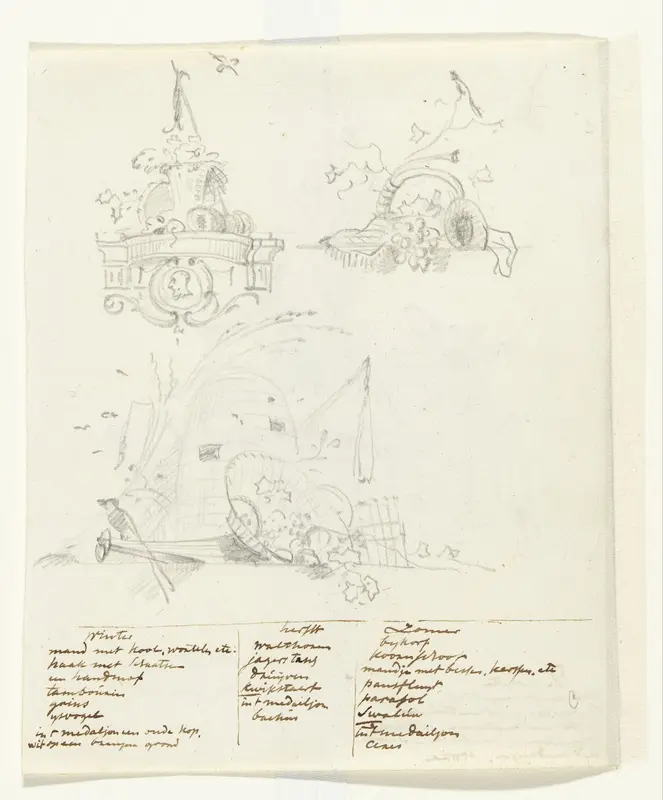 winter
mand met kool, wortels, etc.
haak met schaatsen
een handmof
tambourin
ysvogel
in t medaljon een oude kop,
wit op een bruinen grond
herfst
walthoorn
jagers tas
druiven
kwikstaert
in t medailjon
bachus
Zomer
bykorf
mandje met bessen, kersen, etc
pansfluyt
parasol
Swaluw
in t medailjon
Ceres